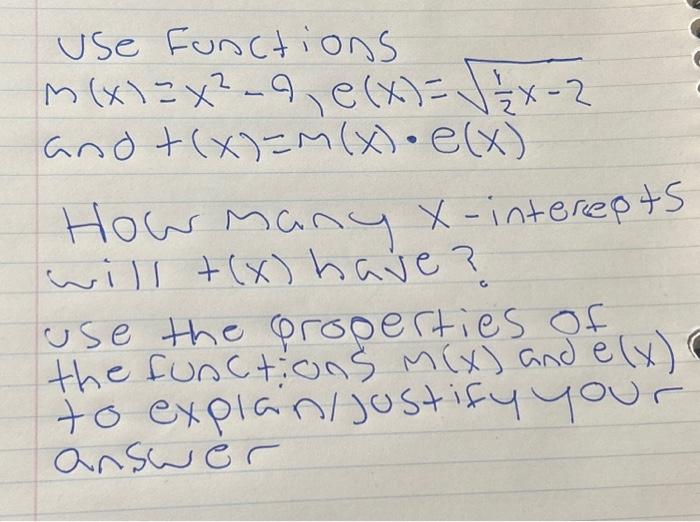 Use Functions
m(x)=x²-9, e(x)=√(1/2x-2)
and t(x)=m(x)•e(x)
How many x-intercepts
will t(x) have?
use the properties of
the functions m(x) and e(x)
to explan/justify your
answer